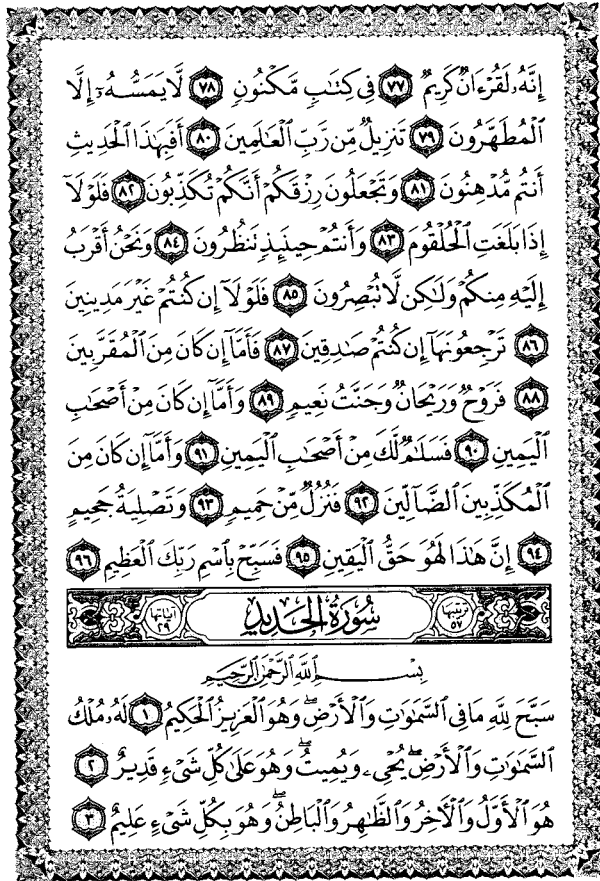 إِنَّهُۥ لَقُرْءَانٌ كَرِيمٌ ﴿٧٧﴾ فِى كِتَٰبٍ مَّكْنُونٍ ﴿٧٨﴾ لَّا يَمَسُّهُۥٓ إِلَّا
ٱلْمُطَهَّرُونَ ﴿٧٩﴾ تَنزِيلٌ مِّن رَّبِّ ٱلْعَٰلَمِينَ ﴿٨٠﴾ أَفَبِهَٰذَا ٱلْحَدِيثِ
أَنتُم مُّدْهِنُونَ ﴿٨١﴾ وَتَجْعَلُونَ رِزْقَكُمْ أَنَّكُمْ تُكَذِّبُونَ ﴿٨٢﴾ فَلَوْلَآ
إِذَا بَلَغَتِ ٱلْحُلْقُومَ ﴿٨٣﴾ وَأَنتُمْ حِينَئِذٍ تَنظُرُونَ ﴿٨٤﴾ وَنَحْنُ أَقْرَبُ
إِلَيْهِ مِنكُمْ وَلَٰكِن لَّا تُبْصِرُونَ ﴿٨٥﴾ فَلَوْلَآ إِن كُنتُمْ غَيْرَ مَدِينِينَ
﴿٨٦﴾ تَرْجِعُونَهَآ إِن كُنتُمْ صَٰدِقِينَ ﴿٨٧﴾ فَأَمَّآ إِن كَانَ مِنَ ٱلْمُقَرَّبِينَ
﴿٨٨﴾ فَرَوْحٌ وَرَيْحَانٌ وَجَنَّتُ نَعِيمٍ ﴿٨٩﴾ وَأَمَّآ إِن كَانَ مِنْ أَصْحَٰبِ
ٱلْيَمِينِ ﴿٩٠﴾ فَسَلَٰمٌ لَّكَ مِنْ أَصْحَٰبِ ٱلْيَمِينِ ﴿٩١﴾ وَأَمَّآ إِن كَانَ مِنَ
ٱلْمُكَذِّبِينَ ٱلضَّآلِّينَ ﴿٩٢﴾ فَنُزُلٌ مِّنْ حَمِيمٍ ﴿٩٣﴾ وَتَصْلِيَةُ جَحِيمٍ
﴿٩٤﴾ إِنَّ هَٰذَا لَهُوَ حَقُّ ٱلْيَقِينِ ﴿٩٥﴾ فَسَبِّحْ بِٱسْمِ رَبِّكَ ٱلْعَظِيمِ ﴿٩٦﴾
ترتيبها ٥٧ سُورَةُ الحَدِيدِ آياتها ٢٩
بِسْمِ ٱللَّهِ ٱلرَّحْمَٰنِ ٱلرَّحِيمِ
سَبَّحَ لِلَّهِ مَا فِى ٱلسَّمَٰوَٰتِ وَٱلْأَرْضِ ۖ وَهُوَ ٱلْعَزِيزُ ٱلْحَكِيمُ ﴿١﴾ لَهُۥ مُلْكُ
ٱلسَّمَٰوَٰتِ وَٱلْأَرْضِ ۖ يُحْىِۦ وَيُمِيتُ ۖ وَهُوَ عَلَىٰ كُلِّ شَىْءٍ قَدِيرٌ ﴿٢﴾
هُوَ ٱلْأَوَّلُ وَٱلْءَاخِرُ وَٱلظَّٰهِرُ وَٱلْبَاطِنُ ۖ وَهُوَ بِكُلِّ شَىْءٍ عَلِيمٌ ﴿٣﴾